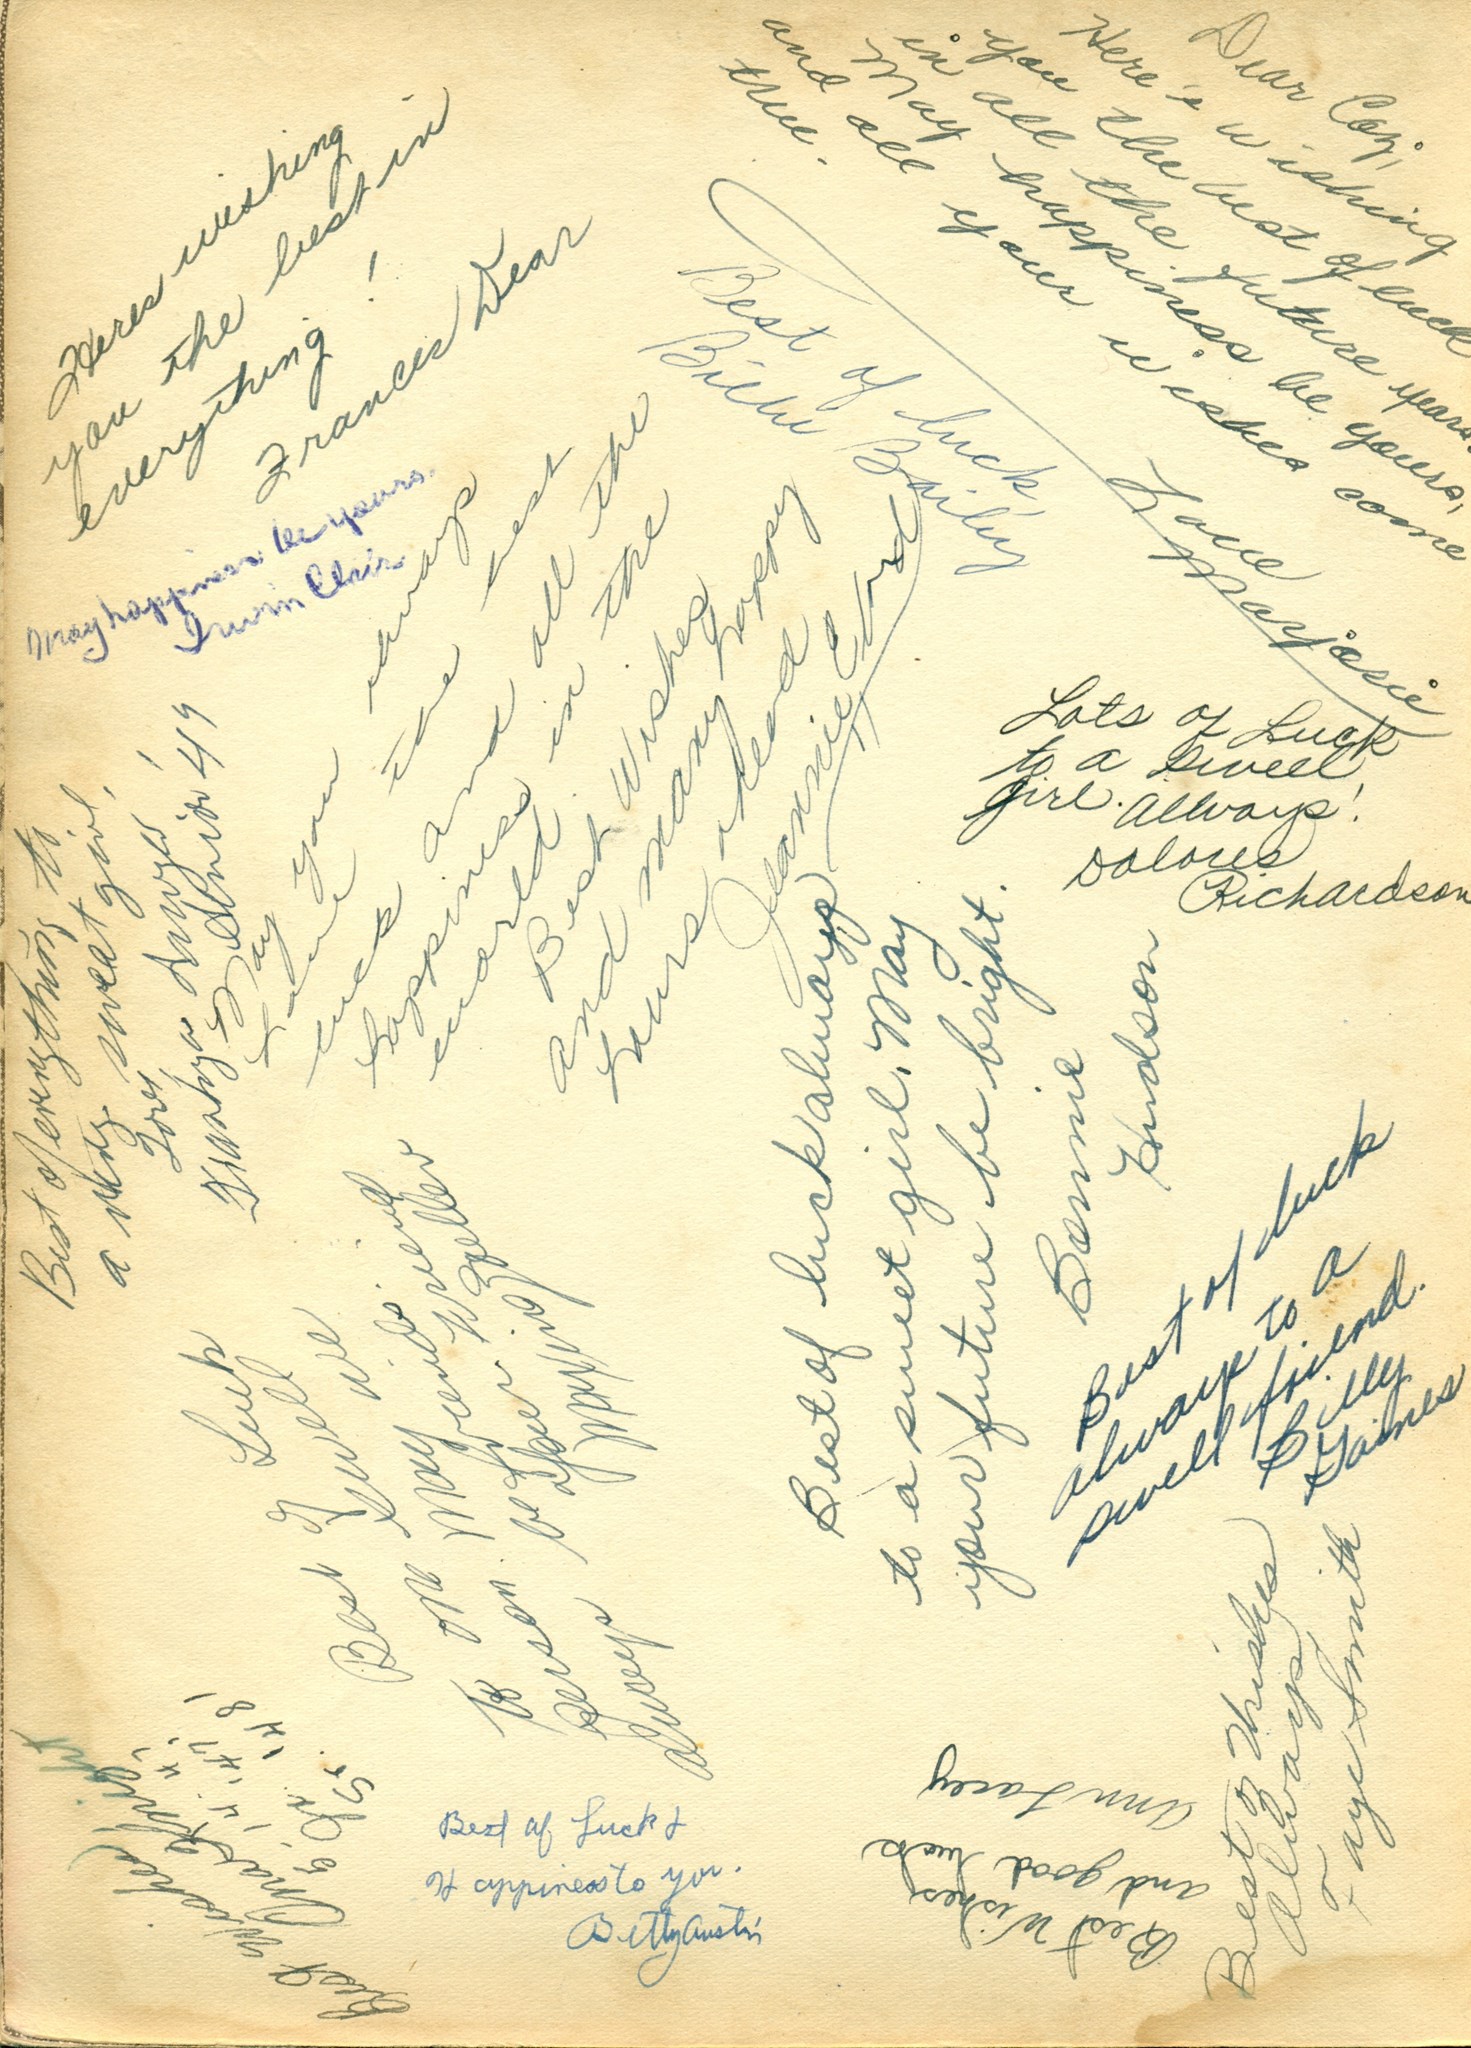 Heres wishing
you the best in
everything!
Frances Dear
Dear Caj,
Here's wishing
you the best of luck
in all the future years.
May happiness be yours,
and all your wishes come
true.
Love
Marjorie
Best of luck,
Billie Bailey
May happiness be yours.
Irwin Clair
Lots of Luck
to a sweet
girl. Allways!
Dolores
Richardson
Best of everything to
a very sweet girl,
Love, always!
Senior 49
May you always
have the best
luck and all the
happiness in the
world.
Best Wishes
and many happy
hours ahead
Jeannie
Best of luck always
to a sweet girl. May
your future be bright.
Bonnie
Hudson
Best of luck
always to a
swell friend.
Billy
Gaines
Best Luck
I will
May
friend
always
Best Wishes
'47
'48
Best of Luck &
Happiness to you.
Betty Austin
Best Wishes
and good luck
Ann Lacey
Best of Wishes
Always
Faye Smith